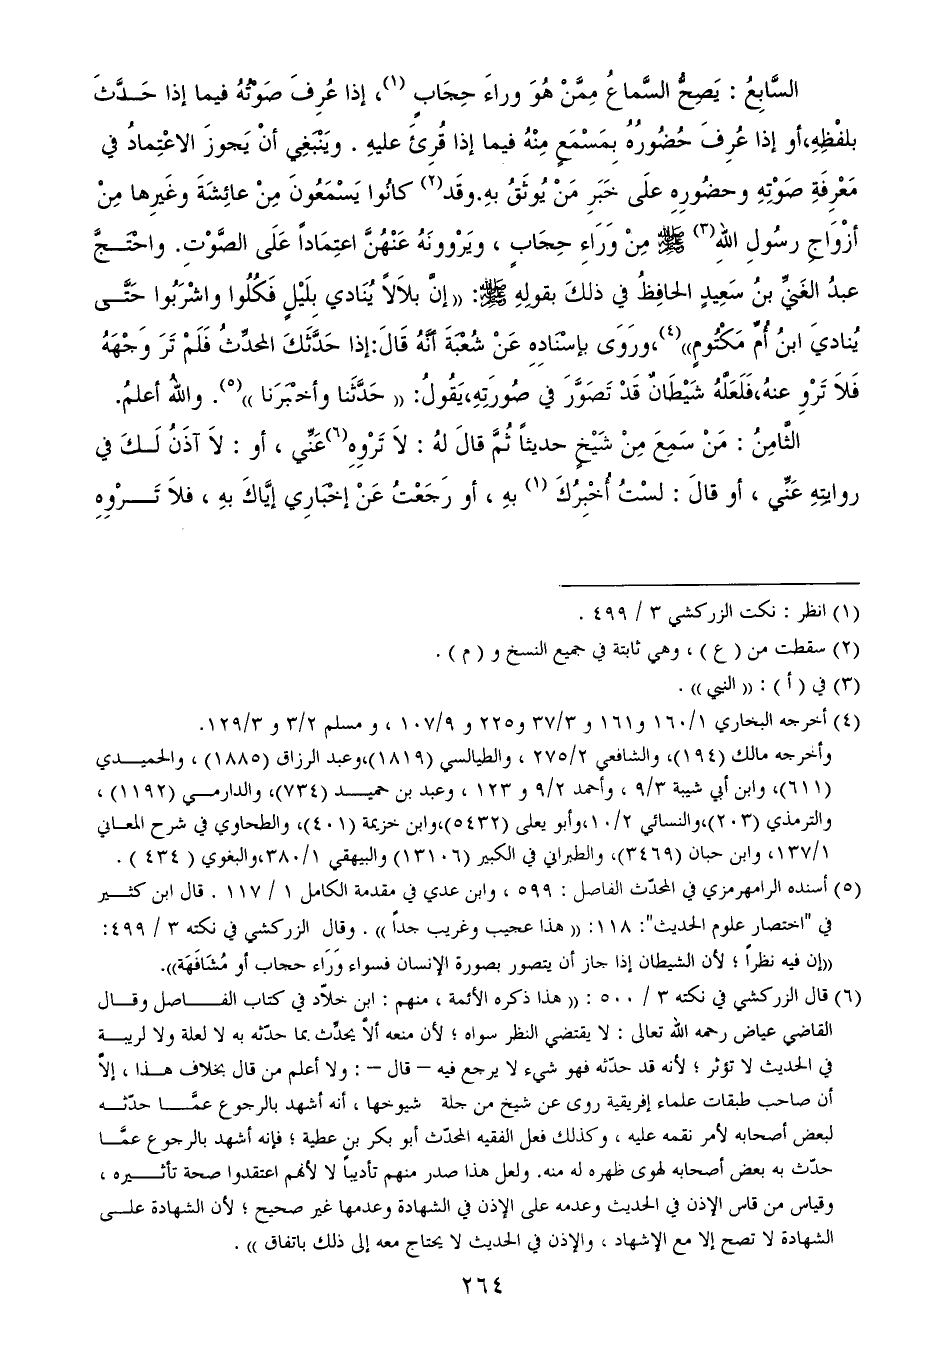 السَّابِعُ : يَصِحُّ السَّماعُ مِمَّنْ هُوَ وراءَ حِجَابٍ (١)، إذا عُرِفَ صَوْتُهُ فيما إذا حَـدَّثَ
بلفْظِهِ،أو إذا عُرِفَ حُضُورُهُ بِمَسْمَعٍ مِنْهُ فيما إذا قُرِئَ عليهِ . ويَنْبَغِي أنْ يَجوزَ الاعْتِمادُ في
مَعْرِفَةِ صَوْتِهِ وحضُورِهِ علَى خَبَرِ مَنْ يُوثَقُ بهِ.وقَد(٢) كانُوا يَسْمَعُونَ مِنْ عائِشَةَ وغَيرِها مِنْ
أزْوَاجِ رسُولِ اللهِ(٣) ﷺ مِنْ وَرَاءِ حِجابٍ ، ويَرْوُونَهُ عَنْهُنَّ اعتِمَاداً عَلَى الصَّوْتِ. واحْتَـجَّ
عبدُ الغَنِيِّ بنُ سَعِيدٍ الحافِظُ في ذلكَ بقولِهِ ﷺ: (( إنَّ بلالاً يُنَادي بِلَيْلٍ فَكُلُوا واشْرَبُوا حَتَّـى
يُنادِيَ ابنُ أُمِّ مَكْتُومٍ))(٤)،ورَوَى بإسْنَادِهِ عَنْ شُعْبَةَ أنَّهُ قَالَ:إذا حَدَّثَكَ المحَدِّثُ فَلَمْ تَرَ وَجْهَهُ
فَلاَ تَرْوِ عنهُ،فَلَعَلَّهُ شَيْطَانٌ قَدْ تَصَوَّرَ في صُورَتِهِ،يَقُولُ: (( حَدَّثَنا وأخبَرَنا ))(٥). واللهُ أعلمُ.
الثَّامِنُ : مَنْ سَمِعَ مِنْ شَيْخٍ حديثاً ثُمَّ قالَ لهُ : لاَ تَرْوِهِ(٦)عَنِّي ، أو : لاَ آذَنُ لَـكَ في
روايتِهِ عَنِّي ، أو قالَ : لستُ أُخْبِرُكَ (١) بهِ ، أو رَجَعْتُ عَنْ إخْبَاري إيَّاكَ بهِ ، فلاَ تَـرْوِهِ
(١) انظر : نكت الزركشي ٣ / ٤٩٩ .
(٢) سقطت من ( ع ) ، وهي ثابتة في جميع النسخ و ( م ) .
(٣) في ( أ ) : (( النبي )) .
(٤) أخرجه البخاري ١٦٠/١ و١٦١ و ٣٧/٣ و٢٢٥ و ١٠٧/٩ ، و مسلم ٣/٢ و ١٢٩/٣.
وأخرجه مالك (١٩٤)، والشافعي ٢٧٥/٢ ، والطيالسي (١٨١٩)،وعبد الرزاق (١٨٨٥) ، والحميـدي
(٦١١)، وابن أبي شيبة ٩/٣ ، وأحمد ٩/٢ و ١٢٣ ، وعبد بن حميـد (٧٣٤)، والدارمـي (١١٩٢) ،
والترمذي (٢٠٣)،والنسائي ١٠/٢،وأبو يعلى (٥٤٣٢)،وابن خزيمة (٤٠١)، والطحاوي في شرح المعـاني
١٣٧/١، وابن حبان (٣٤٦٩)، والطبراني في الكبير (١٣١٠٦) والبيهقي ٣٨٠/١،والبغوي ( ٤٣٤ ) .
(٥) أسنده الرامهرمزي في المحدّث الفاصل : ٥٩٩ ، وابن عدي في مقدمة الكامل ١ / ١١٧ . قال ابن كثـير
في "اختصار علوم الحديث": ١١٨: (( هذا عجيب وغريب جداً )) . وقال الزركشي في نكته ٣ / ٤٩٩:
((إن فيه نظراً ؛ لأن الشيطان إذا جاز أن يتصور بصورة الإنسان فسواء وَرَاء حجاب أو مُشَافَهَة)).
(٦) قال الزركشي في نكته ٣ / ٥٠٠ : (( هذا ذكره الأئمة ، منهم : ابن خلاّد في كتاب الفـاصل وقـال
القاضي عياض رحمه الله تعالى : لا يقتضي النظر سواه ؛ لأن منعه ألاّ يحدِّث بما حدّثه به لا لعلة ولا لريبـة
في الحديث لا تؤثر ؛ لأنه قد حدّثه فهو شيء لا يرجع فيه – قال – : ولا أعلم من قال بخلاف هـذا ، إلاّ
أن صاحب طبقات علماء إفريقية روى عن شيخ من جلة شيوخها ، أنه أشهد بالرجوع عمَّـا حدّثـه
لبعض أصحابه لأمر نقمه عليه ، وكذلك فعل الفقيه المحدّث أبو بكر بن عطية ؛ فإنه أشهد بالرجوع عمَّـا
حدّث به بعض أصحابه لهوى ظهره له منه. ولعل هذا صدر منهم تأديباً لا لأنهم اعتقدوا صحة تأثـيره ،
وقياس من قاس الإذن في الحديث وعدمه على الإذن في الشهادة وعدمها غير صحيح ؛ لأن الشهادة علـى
الشهادة لا تصح إلا مع الإشهاد ، والإذن في الحديث لا يحتاج معه إلى ذلك باتفاق )) .
٢٦٤